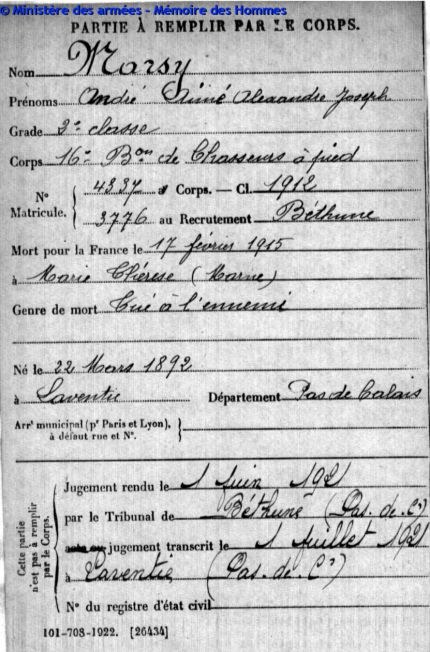 © Ministère des armées - Mémoire des Hommes
PARTIE À REMPLIR PAR LE CORPS.
Nom Marsy
Prénoms André Aimé Alexandre Joseph
Grade 2e classe
Corps 16e Bon de Chasseurs à pied
N° Matricule. { 4337 au Corps. — Cl. 1912
3776 au Recrutement Béthune
Mort pour la France le 17 février 1915
à Marie Thérèse (Marne)
Genre de mort Tué à l'ennemi
Né le 22 Mars 1892
à Laventie Département Pas de Calais
Arrt municipal (pr Paris et Lyon), }
à défaut rue et N°.
Cette partie n'est pas à remplir par le Corps.
Jugement rendu le 1 juin 1921
par le Tribunal de Béthune (Pas. de. Cs)
acte ou jugement transcrit le 1 juillet 1921
à Laventie (Pas. de. Cs)
N° du registre d'état civil
101-708-1922. [26434]